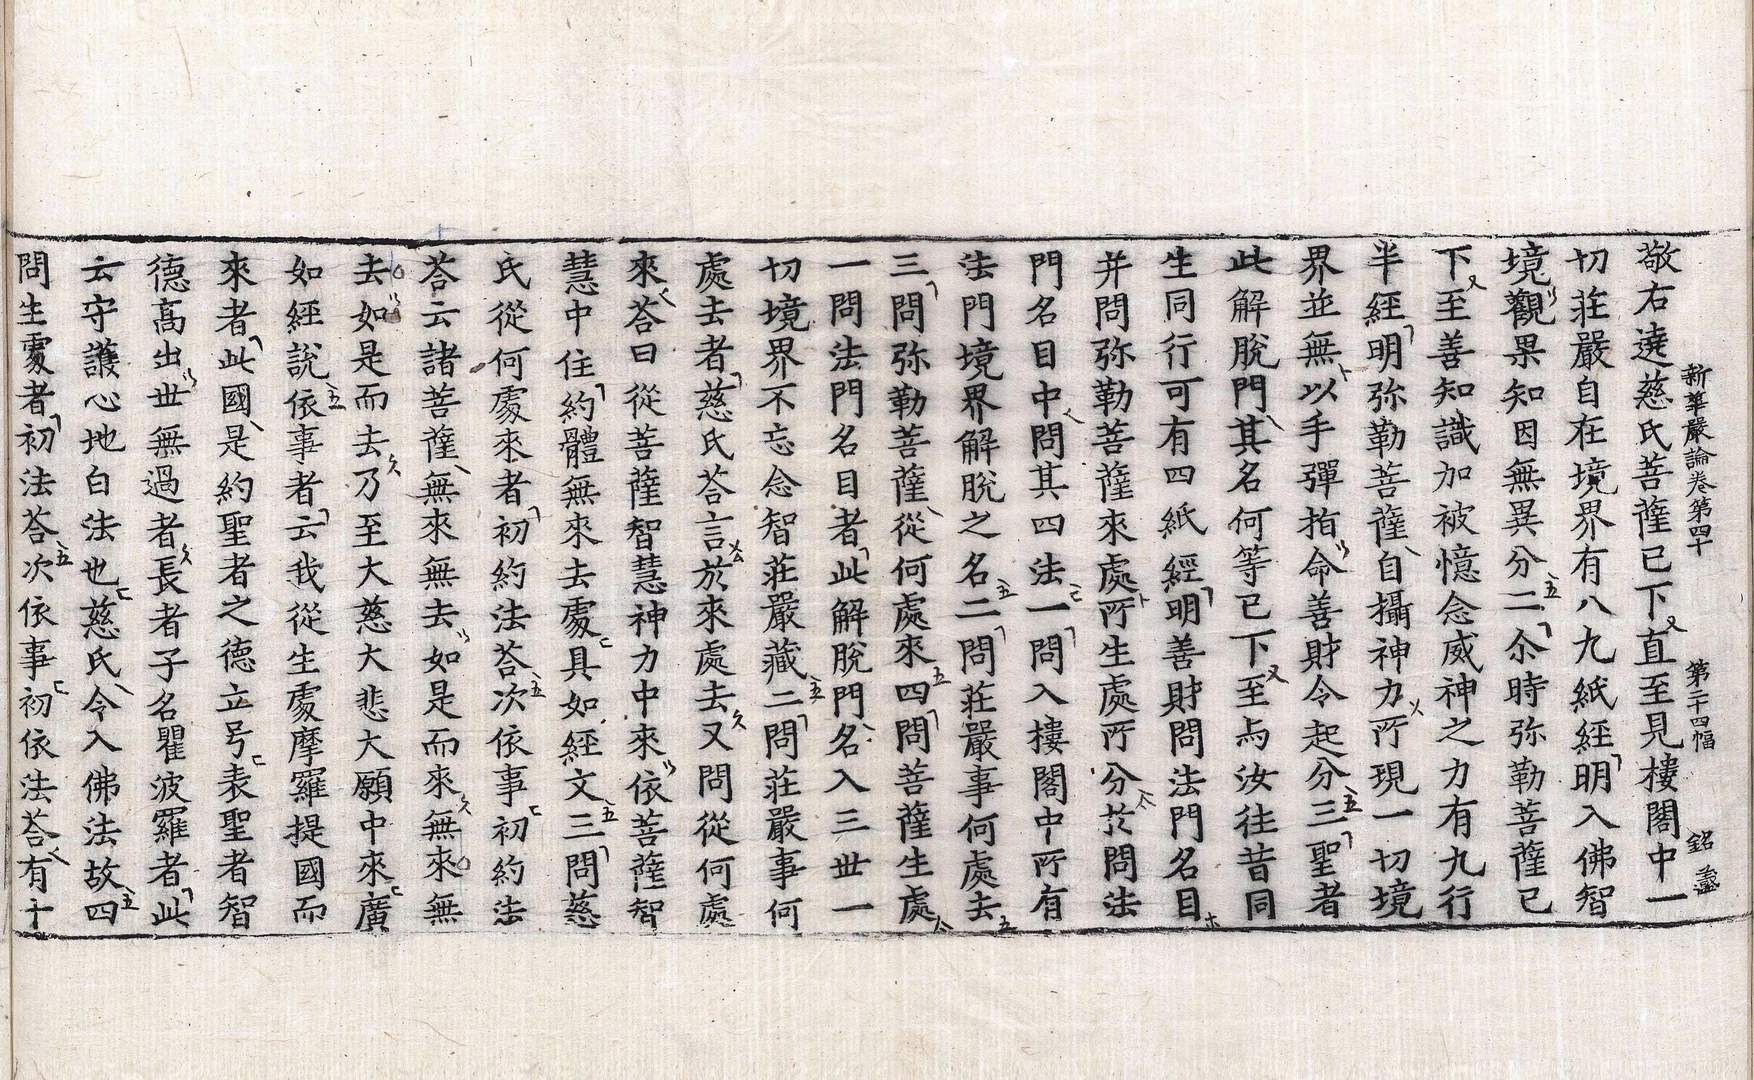 新華嚴論卷第四十 第二十四幅 銘盖
敬右遶慈氏菩薩已下直至見樓閣中一
切莊嚴自在境界有八九紙經明入佛智
境觀果知因無異分二尒時弥勒菩薩已
下至善知識加被憶念威神之力有九行
半經明弥勒菩薩自攝神力所現一切境
界並無以手彈指命善財令起分三聖者
此解脫門其名何等已下至与汝往昔同
生同行可有四紙經明善財問法門名目
并問弥勒菩薩來處所生處所分於問法
門名目中問其四法一問入樓閣中所有
法門境界解脫之名二問莊嚴事何處去
三問弥勒菩薩從何處來四問菩薩生處
一問法門名目者此解脫門名入三世一
切境界不忘念智莊嚴藏二問莊嚴事何
處去者慈氏荅言於來處去又問從何處
來荅曰從菩薩智慧神力中來依菩薩智
慧中住約體無來去處具如經文三問慈
氏從何處來者初約法荅次依事初約法
荅云諸菩薩無來無去如是而來無來無
去如是而去乃至大慈大悲大願中來廣
如經說依事者云我從生處摩羅提國而
來者此國是約聖者之德立号表聖者智
德高出世無過者長者子名瞿波羅者此
云守護心地白法也慈氏令入佛法故四
問生處者初法荅次依事初依法荅有十